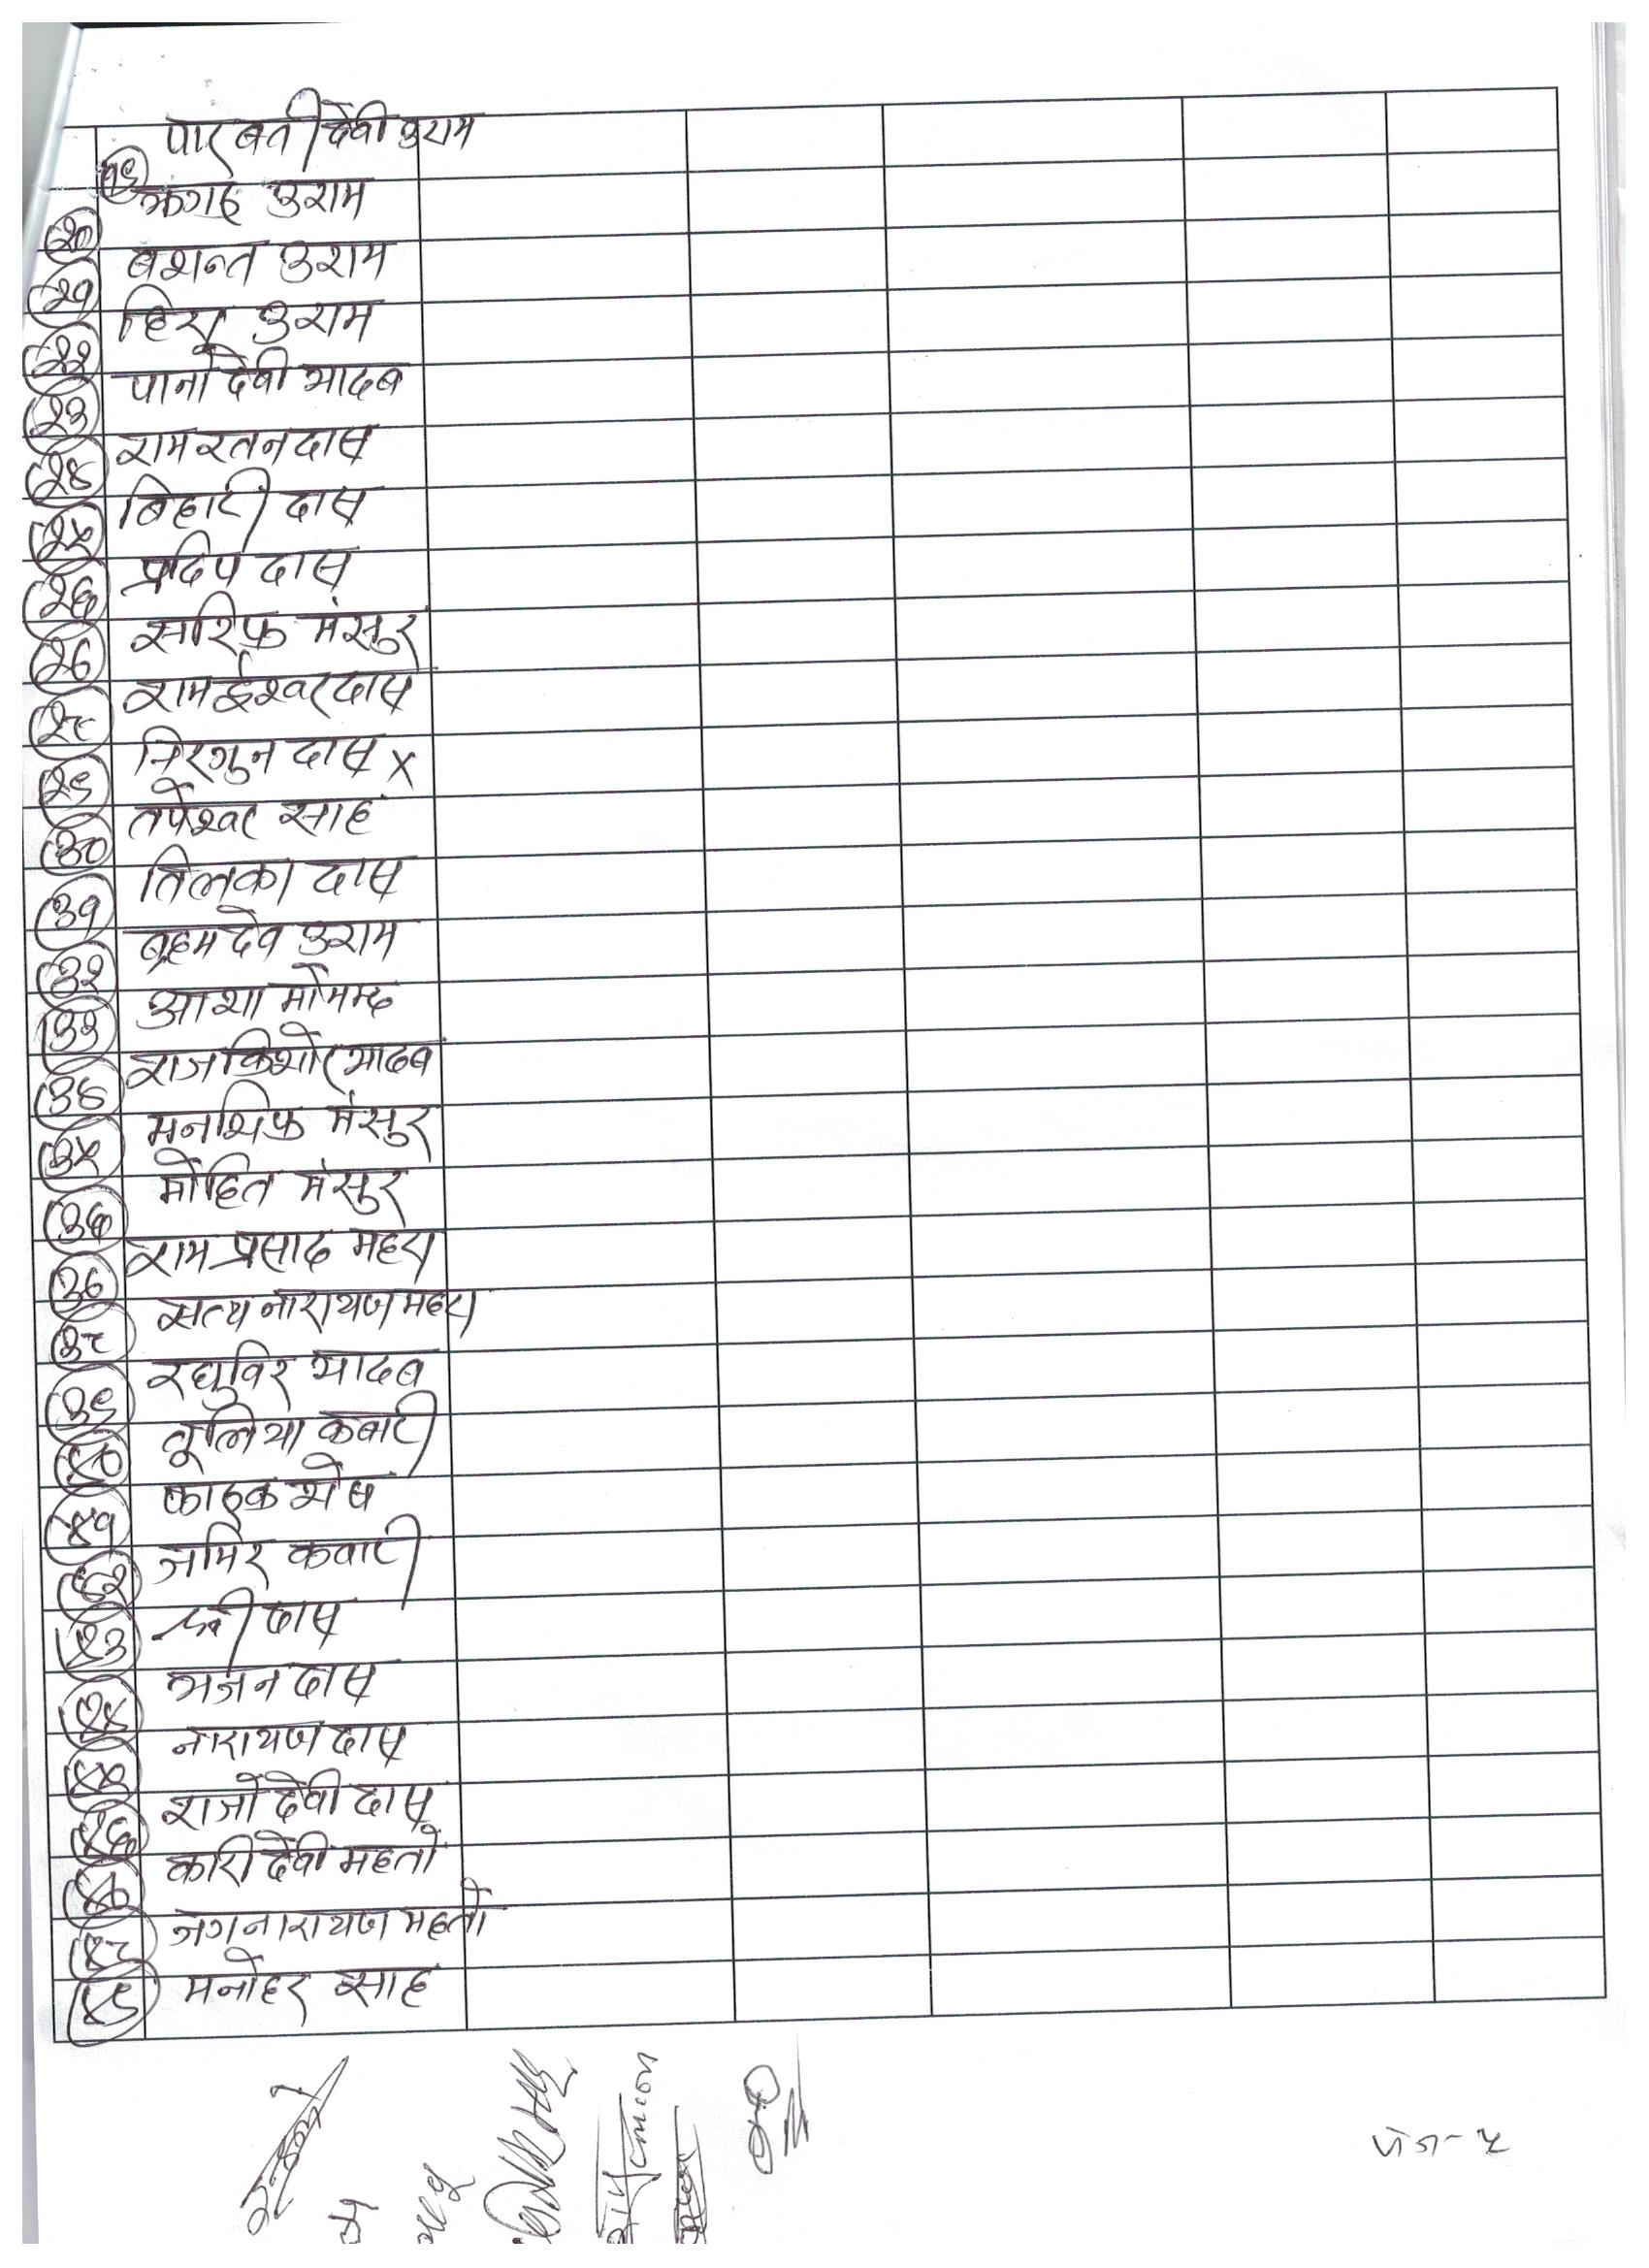 १९ पारबती देवी उराम
२० झगडु उराम
२१ बशन्त उराम
२२ हिरा उराम
२३ पानो देवी यादब
२४ रामरतन दास
२५ बिहारी दास
२६ प्रदिप दास
२७ सारिफ मंसुर
२८ रामईश्वर दास
२९ निरगुन दास x
३० तपेश्वर साह
३१ तिलका दास
३२ ब्रहम देव उराम
३३ आशा मोमम्द
३४ राजकिशोर यादब
३५ मनशिफ मंसुर
३६ मोहित मंसुर
३७ राम प्रसाद महरा
३८ सत्य नारायण महरा
३९ रघुविर यादब
४० कबारी
४१ फारुक शेष
४२ जमिर कवारी
४३ श्री दास
४४ भजन दास
४५ नारायण दास
४६ राजो देवी दास
४७ कारी देवी महतो
४८ जगनारायण महतो
४९ मनोहर साह
पेज-५